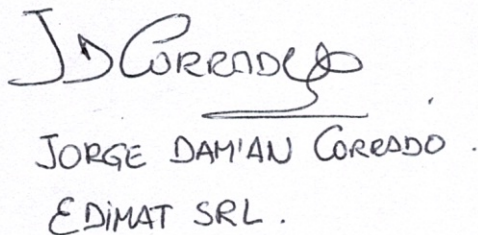 JD Corrado
JORGE DAMIAN CORRADO.
EDIMAT SRL.